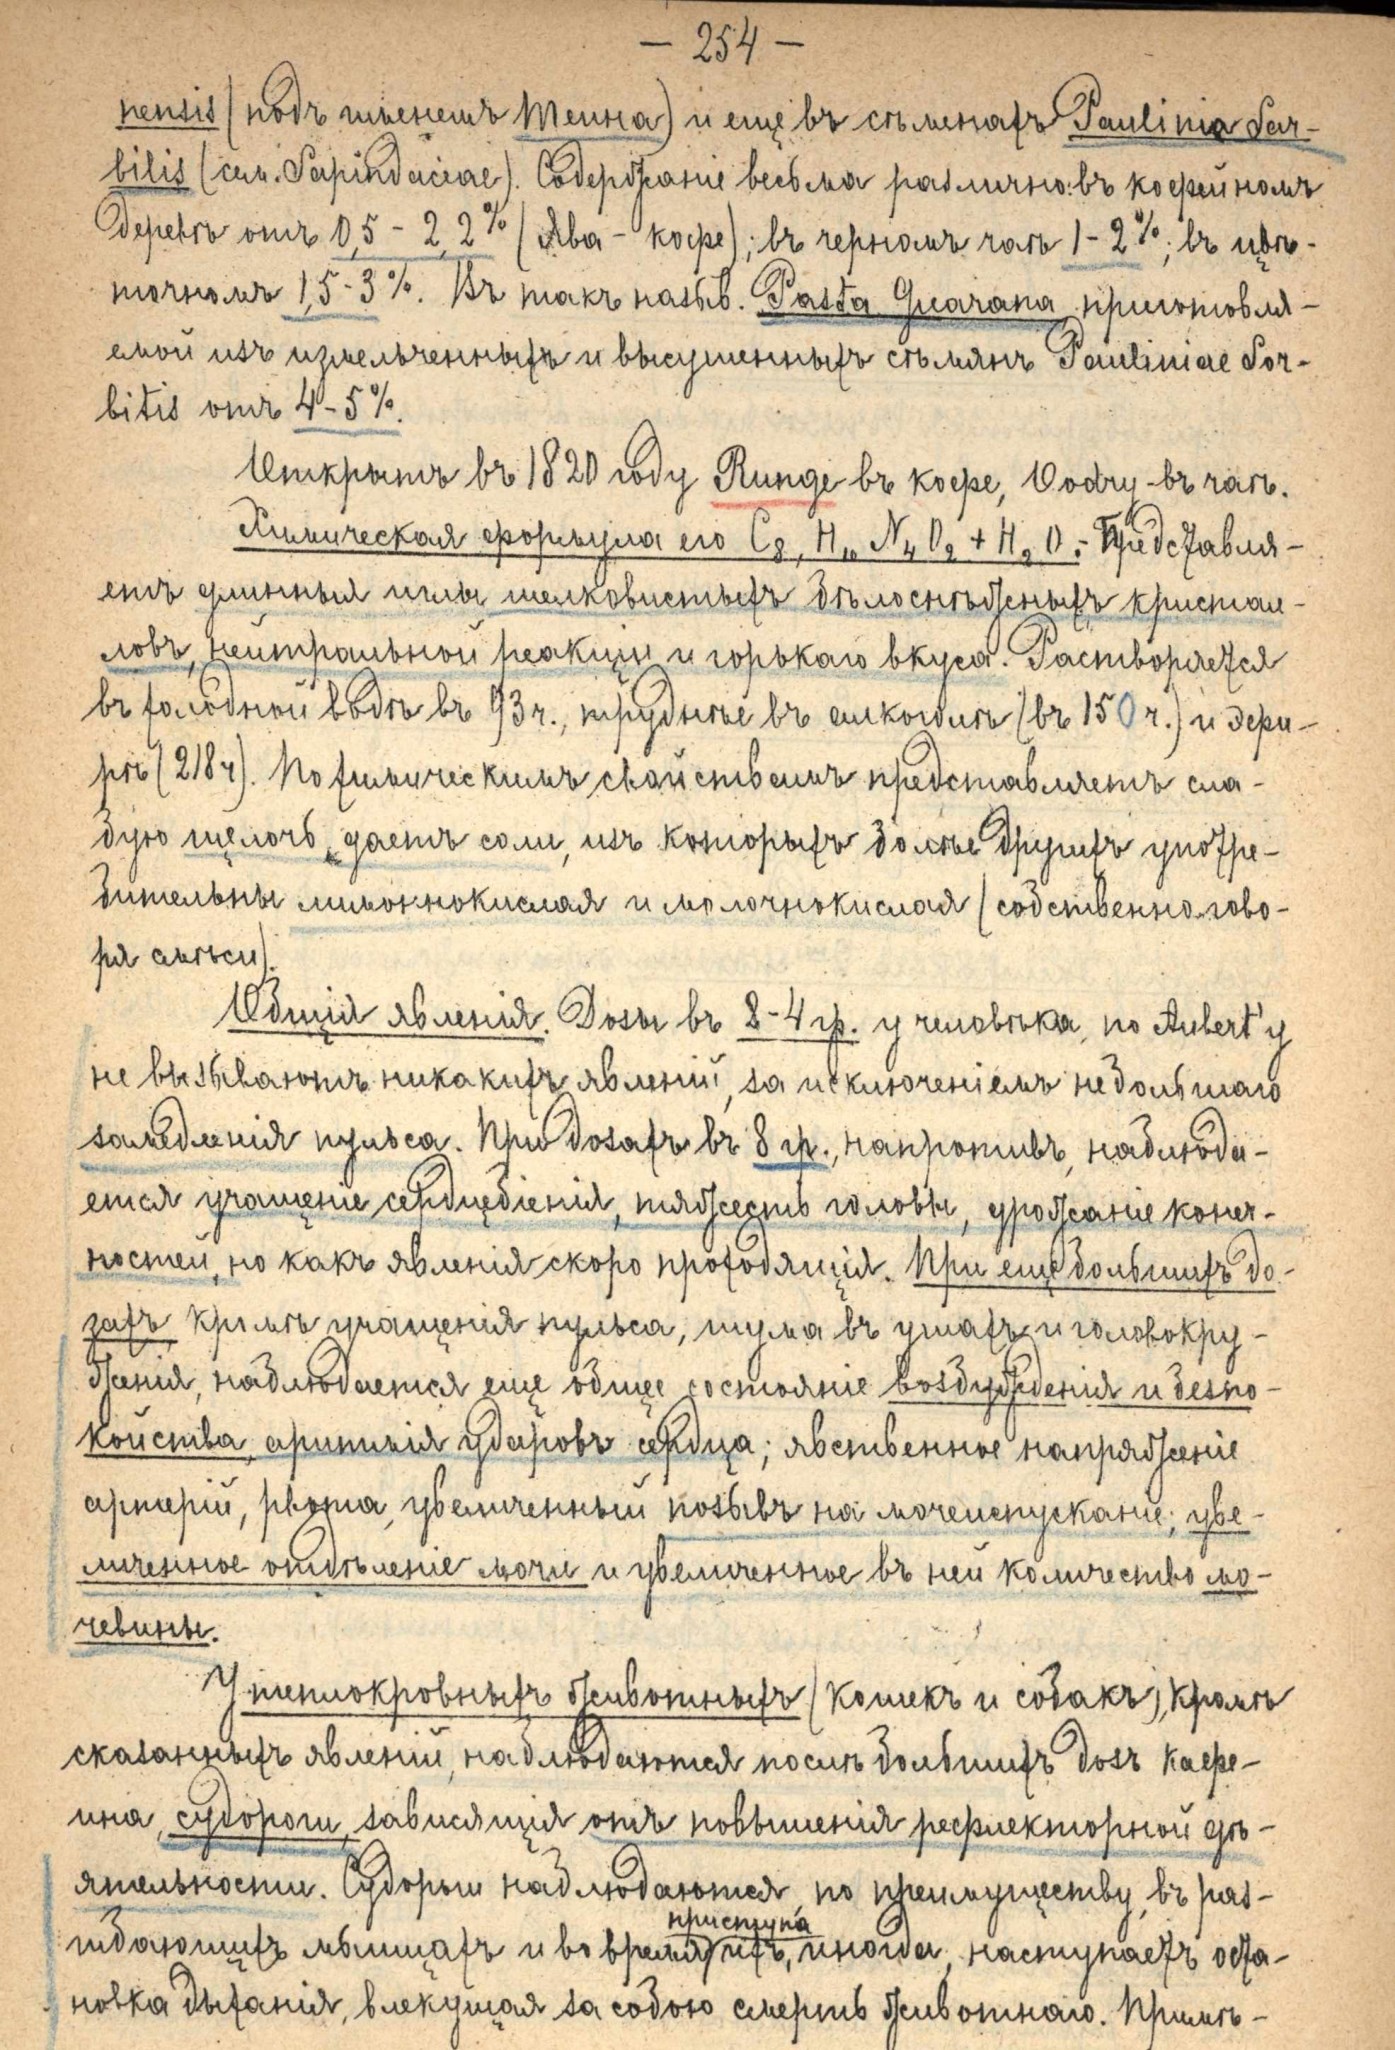 — 254 —
nensis (подъ именемъ Теина) и еще въ сѣменахъ Paulinia Sor-
bilis (сем. Sapindaceae). Содержаніе весьма различно: въ кофейномъ
деревѣ отъ 0,5 - 2,2% (Ява - кофе); въ черномъ чаѣ 1 - 2%; въ цвѣ-
точномъ 1,5 - 3%. Въ такъ назыв. Pasta Guarana приготовля-
емой изъ измельченныхъ и высушенныхъ сѣмянъ Pauliniae Sor-
bilis отъ 4 - 5%.
Открытъ въ 1820 году Runge въ кофе, Oudry - въ чаѣ.
Химическая формула его C8, H10 N4 O2 + H2 O. - Представля-
етъ длинныя иглы шелковистыхъ бѣлоснѣжныхъ кристал-
ловъ, нейтральной реакціи и горькаго вкуса. Растворяется
въ холодной водѣ въ 93 ч., труднѣе въ алкоголѣ (въ 150 ч.) и эѳи-
рѣ (218 ч). По химическимъ свойствамъ представляетъ сла-
бую щелочь, даетъ соли, изъ которыхъ болѣе другихъ употре-
бительны лимоннокислая и молочнокислая (собственно гово-
ря смѣси).
Общія явленія. Дозы въ 2 - 4 гр. у человѣка, по Aubert'у
не вызываютъ никакихъ явленій, за исключеніемъ небольшаго
замедленія пульса. При дозахъ въ 8 гр., напротивъ, наблюда-
ется учащеніе сердцебіенія, тяжесть головы, дрожаніе конеч-
ностей, но какъ явленія скоро проходящія. При еще большихъ до-
захъ, кромѣ учащенія пульса, шума въ ушахъ и головокру-
женія, наблюдается еще общее состояніе возбужденія и безпо-
койства, аритмія ударовъ сердца; явственное напряженіе
артерій, рвота, увеличенный позывъ на мочеиспусканіе; уве-
личенное отдѣленіе мочи и увеличенное въ ней количество мо-
чевины.
У теплокровныхъ животныхъ (кошекъ и собакъ), кромѣ
сказанныхъ явленій, наблюдаются послѣ большихъ дозъ кафе-
ина, судороги, зависящія отъ повышенія рефлекторной дѣ-
ятельности. Судороги наблюдаются, по преимуществу, въ раз-
гибающихъ мышцахъ и во время приступа ихъ, иногда, наступаетъ оста-
новка дыханія, влекущая за собою смерть животнаго. Примѣ-